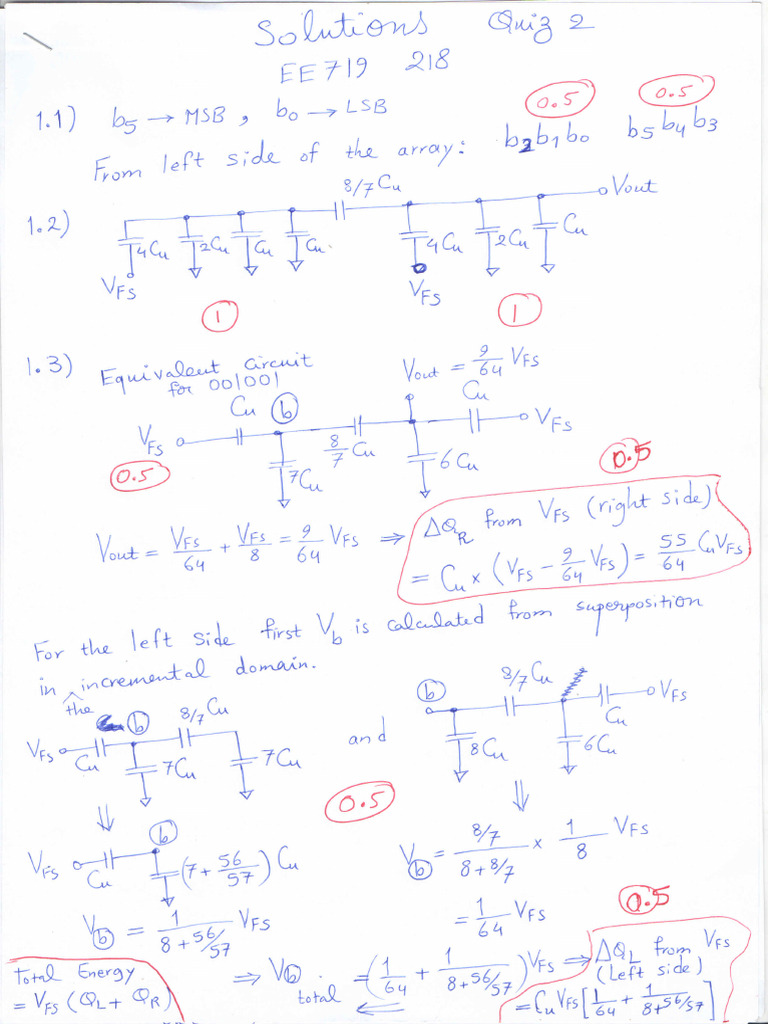 Solutions Quiz 2
EE719 218
1.1) b5 → MSB, b0 → LSB
0.5 0.5
From left side of the array: b2b1b0 b5b4b3
1.2)
8/7 Cu
Vout
4Cu 2Cu Cu Cu 4Cu 2Cu Cu
VFS VFS
1 1
1.3) Equivalent circuit
for 001001
Vout = 9/64 VFS
Cu b Cu
VFS 8/7 Cu VFS
7Cu 6Cu
0.5 0.5
Vout = VFS/64 + VFS/8 = 9/64 VFS ⇒ ΔQR from VFS (right side)
= Cu × (VFS − 9/64 VFS) = 55/64 CuVFS
For the left side first Vb is calculated from superposition
in the incremental domain.
b 8/7 Cu and b 8/7 Cu VFS
VFS Cu 7Cu 7Cu 8Cu 6Cu Cu
0.5
VFS Cu b (7 + 56/57) Cu
Vb = 8/7 / (8 + 8/7) × 1/8 VFS
Vb = 1 / (8 + 56/57) VFS
= 1/64 VFS
0.5
Total Energy
= VFS (QL + QR)
⇒ Vb total = (1/64 + 1/(8 + 56/57)) VFS ⇒ ΔQL from VFS
(left side)
= Cu VFS [1/64 + 1/(8 + 56/57)]